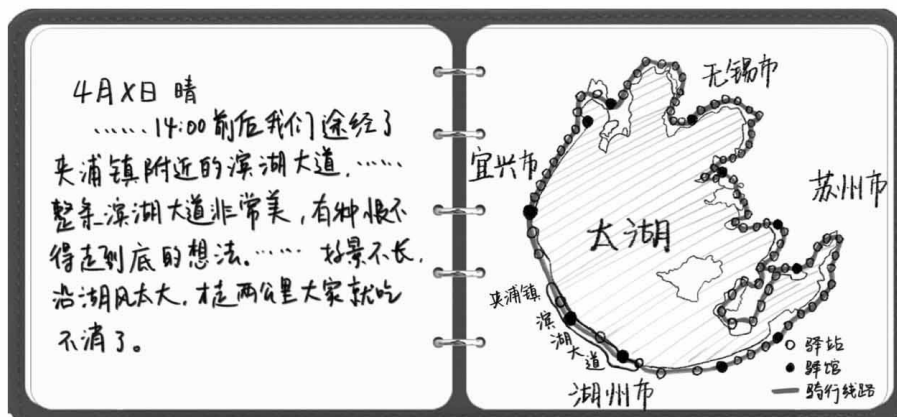 4月X日 晴
……14:00前后我们途经了
夹浦镇附近的滨湖大道.……
整条滨湖大道非常美,有种恨不
得走到底的想法。……好景不长,
沿湖风太大,才走两公里大家就吃
不消了。
无锡市
宜兴市
苏州市
太湖
夹浦镇
滨湖大道
湖州市
驿站
驿馆
骑行线路